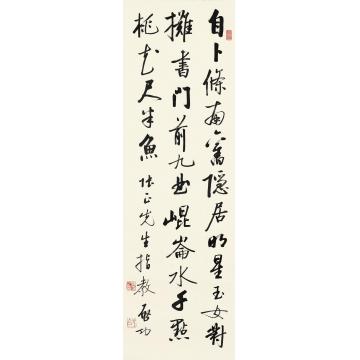 自卜條南舊隱居明星玉女對
攤書门前九曲崐崙水千點
桃花尺半魚 张正先生指教 啟功